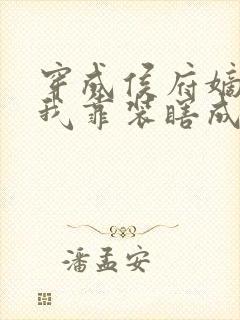 穿成侯府嫡
我靠装瞎成
潘孟安